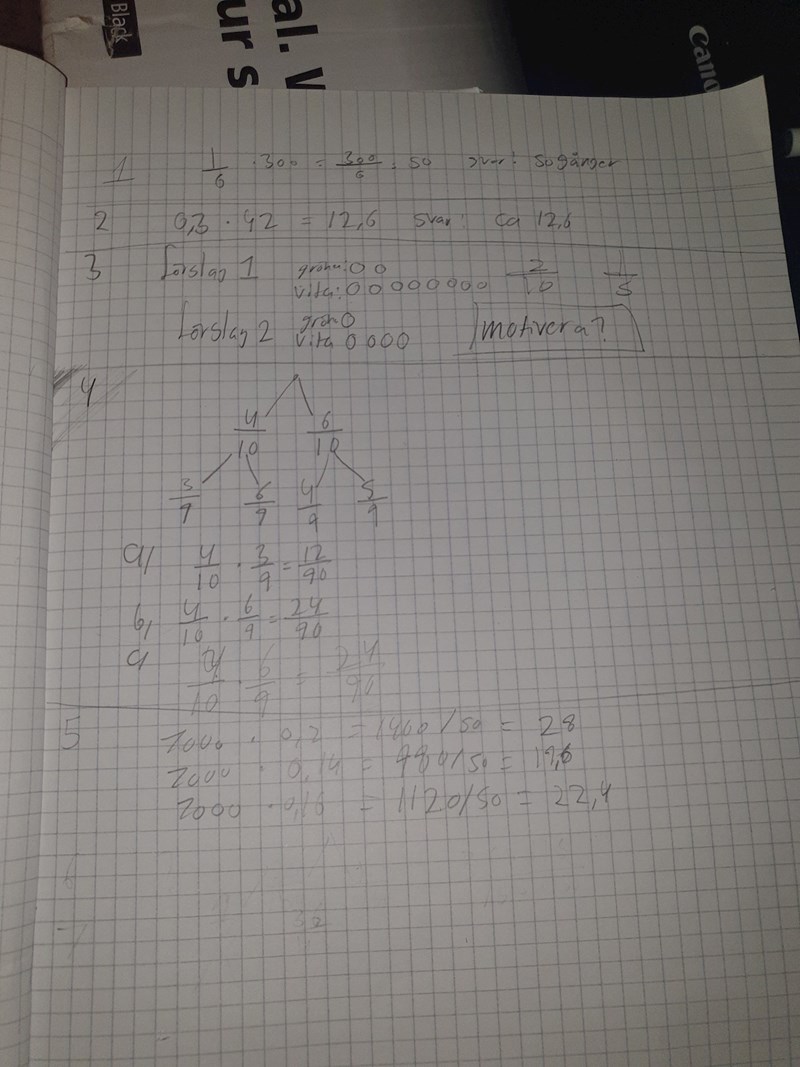 Black
al. V
ur s
Cano
1 1/6 · 300 = 300/6 = 50 svar: 50 gånger
2 0,3 · 42 = 12,6 svar: ca 12,6
3 Förslag 1 gröna: 00 2/10 1/5
vita: 00000000
Förslag 2 grön 0
vita 0000 motivera?
4
4/10 6/10
3/9 6/9 4/9 5/9
a) 4/10 · 3/9 = 12/90
b) 4/10 · 6/9 = 24/90
c) 4/10 · 6/9 = 24/90
5 7000 · 0,2 = 1400/50 = 28
7000 · 0,14 = 980/50 = 19,6
7000 · 0,16 = 1120/50 = 22,4
32